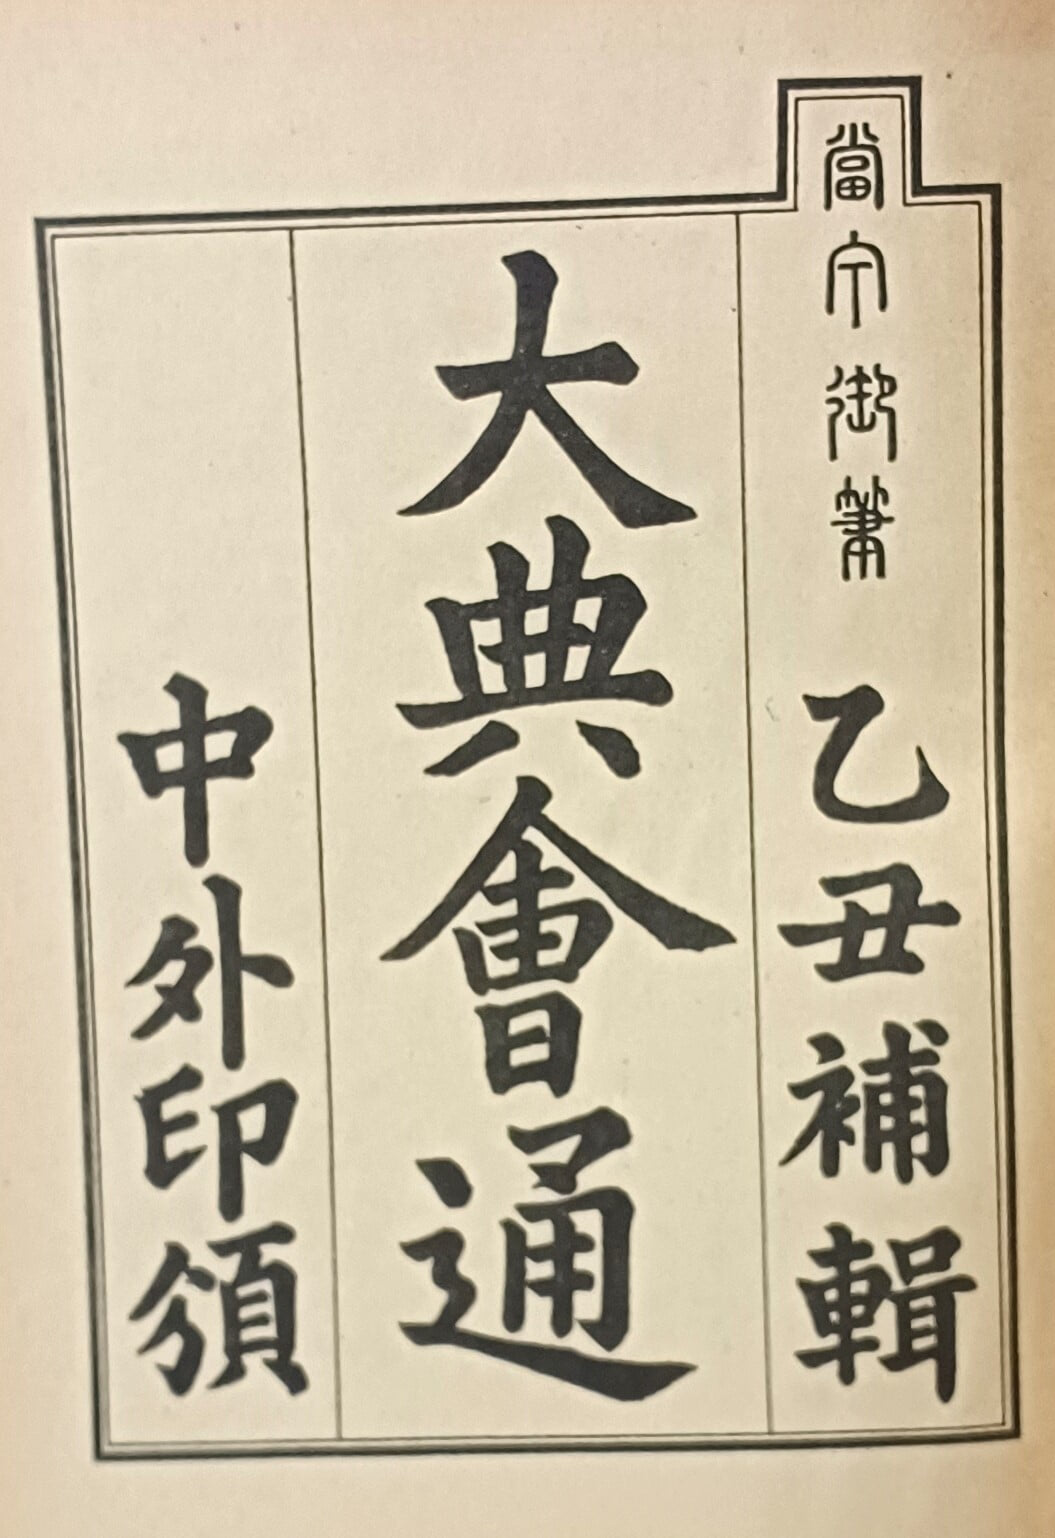 當宁御筆 乙丑補輯
大典會通
中外印頒